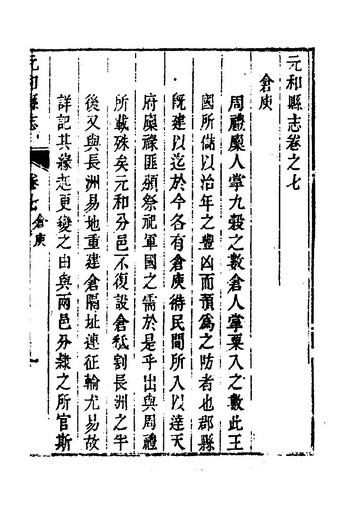 元和縣志卷之七
倉庾
周禮廩人掌九穀之數倉人掌粟入之數此王
國所儲以治年之豐凶而預爲之防者也郡縣
既建以迄於今各有倉庾待民間所入以達天
府廩祿匪頒祭祀軍國之需於是乎出與周禮
所載殊矣元和分邑不復設倉秪割長洲之半
後又與長洲易地重建倉隔址連征輸尤易故
詳記其緣起更變之由與兩邑分隸之所官斯
元和縣志
卷七倉庾
一